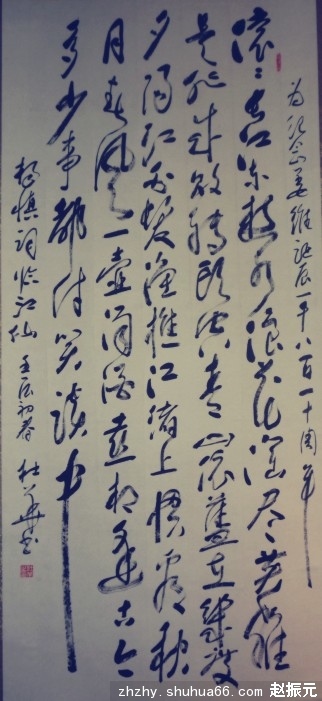 为纪念姜维诞辰一千八百一十周年
滚滚长江东逝水浪花淘尽英雄
是非成败转头空青山依旧在几度
夕阳红白发渔樵江渚上惯看秋
月春风一壶浊酒喜相逢古今
多少事都付笑谈中
杨慎词临江仙 壬辰初春 杜
zhzhy.shuhua66.com 赵振元